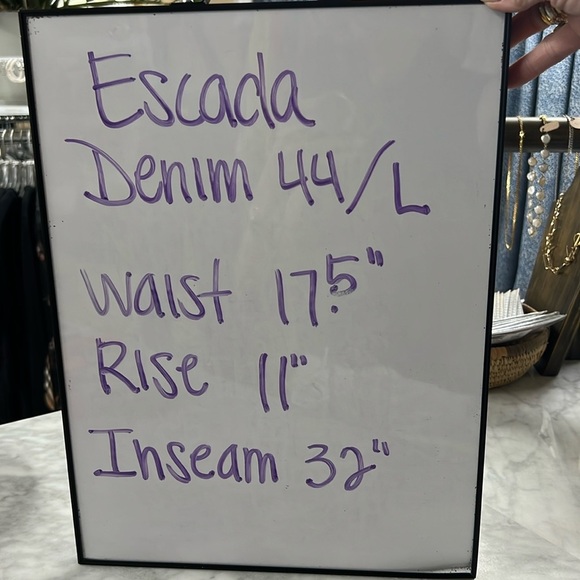 Escada
Denim 44/L
Waist 17.5"
Rise 11"
Inseam 32"